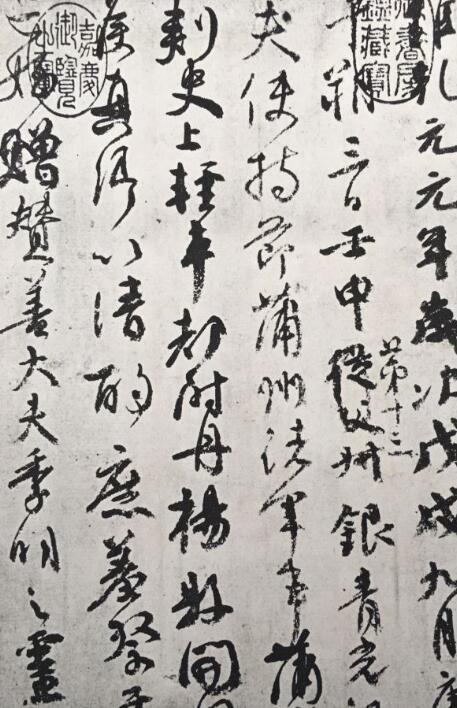 乾元元年歲次戊戌九月庚
朔三日壬申第十三從父叔銀青光祿
夫使持節蒲州諸軍事蒲
刺史上輕車都尉丹楊縣開
侯真卿以清酌庶羞祭于
亡姪贈贊善大夫季明之靈
御書房鑒藏寶
嘉慶御覽之寶